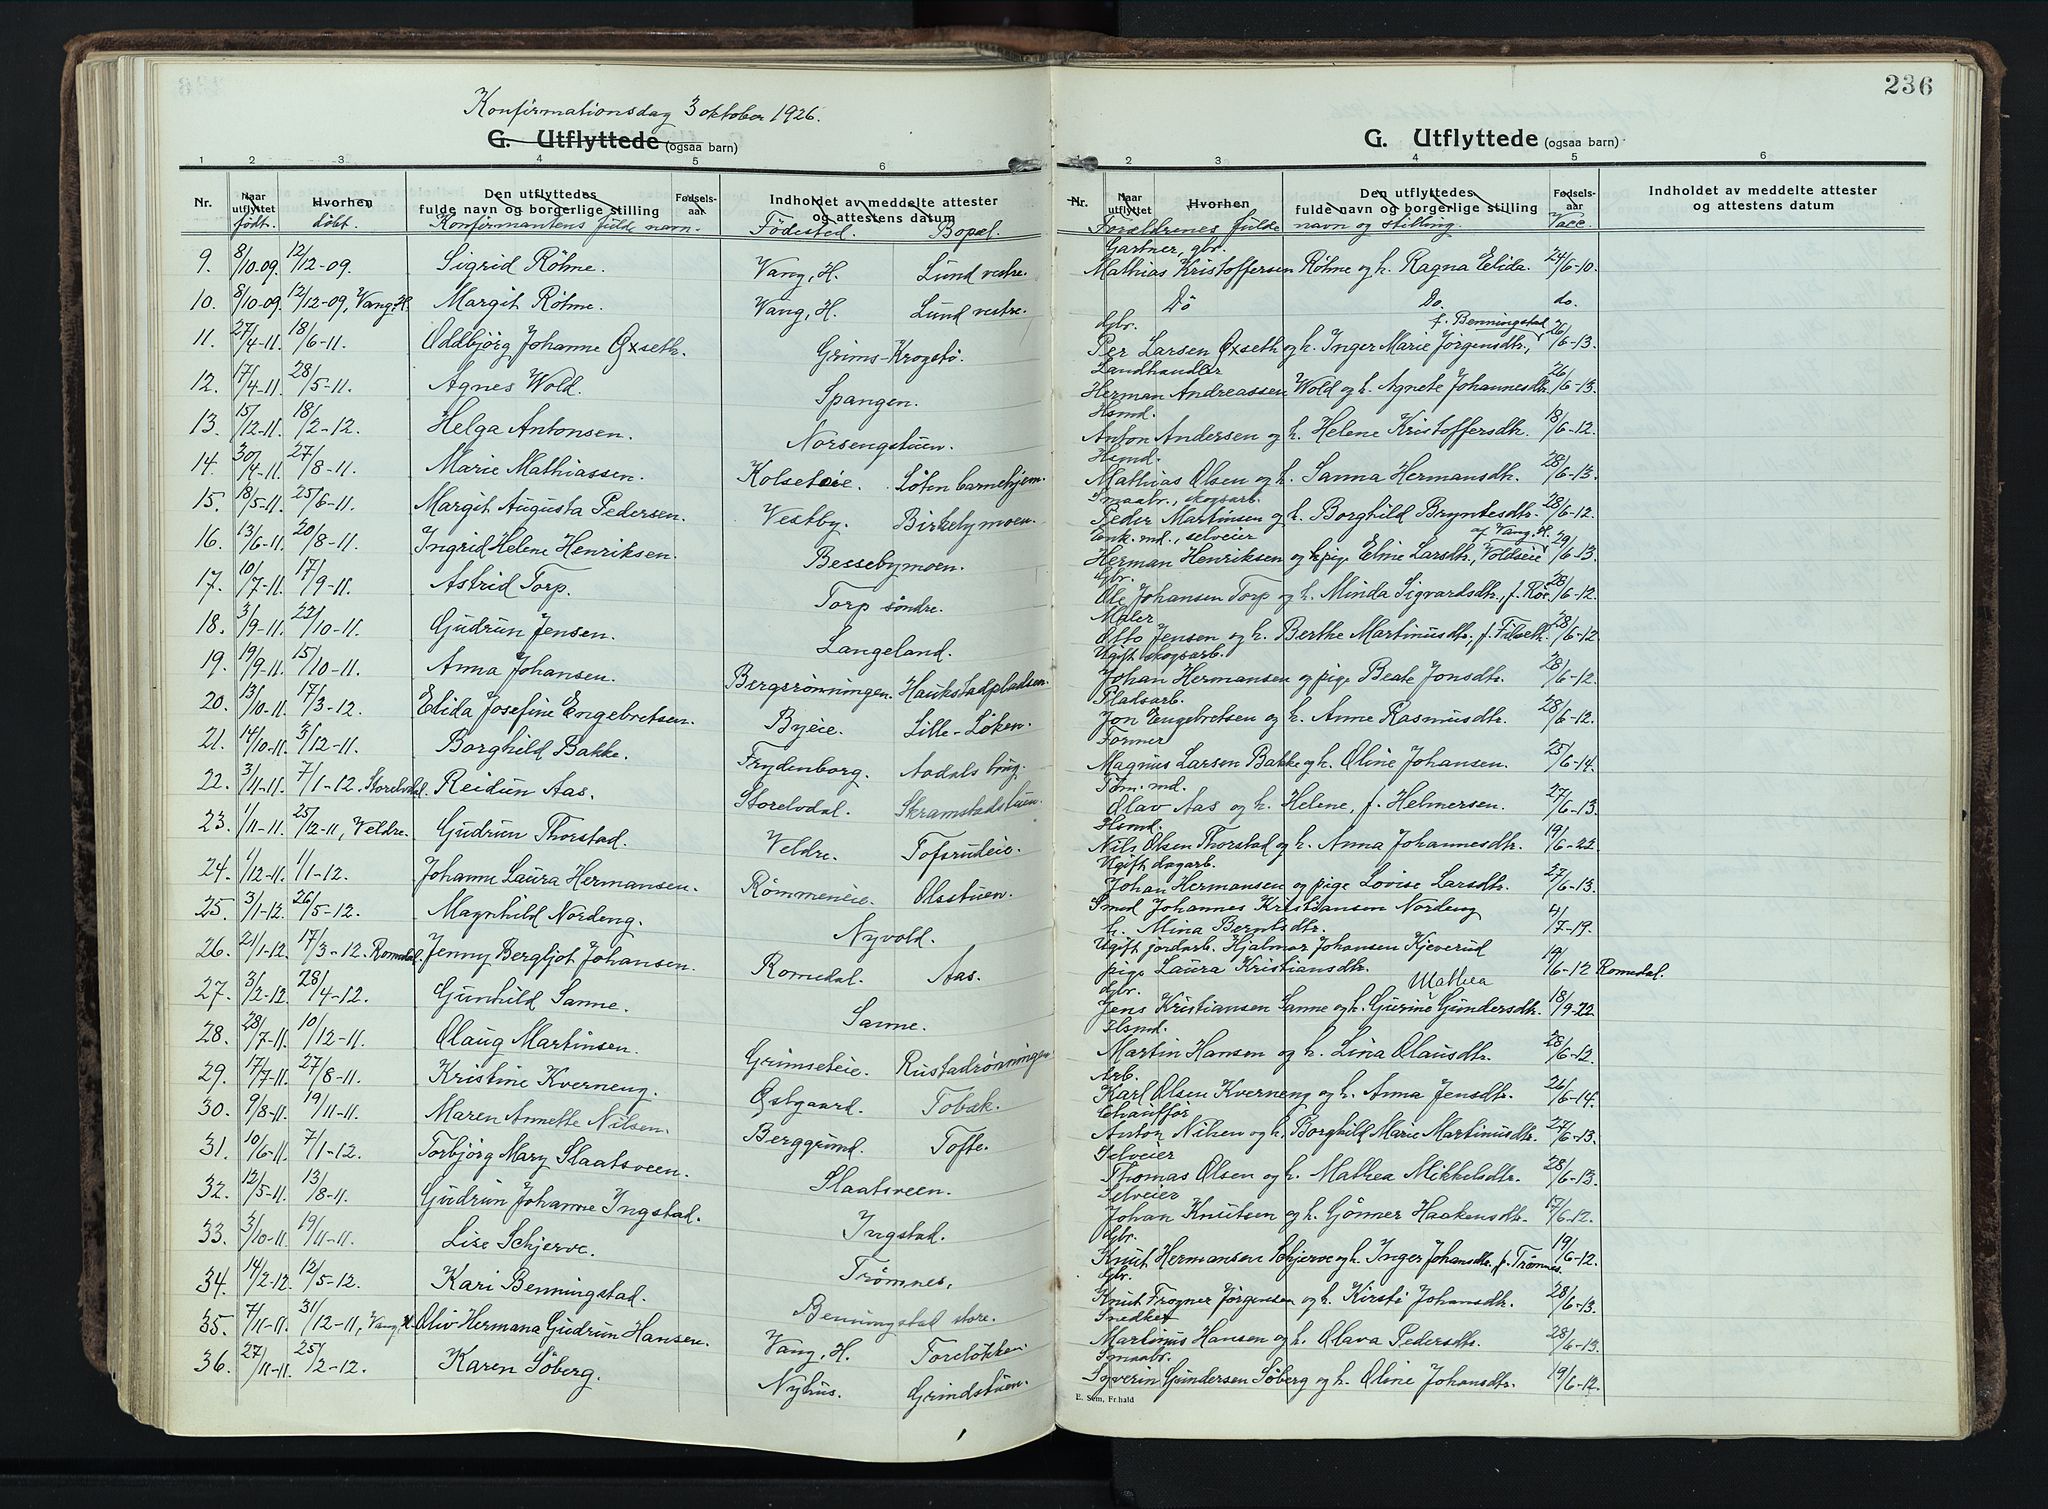 Konfirmationsdag 3 oktober 1926.
G. Utflyttede (ogsaa barn)
1 2 3 4 5 6
Nr. Naar utflyttet Hvorhen Den utflyttedes fulde navn og borgerlige stilling Fødsels-aar Indholdet av meddelte attester og attestens datum
født. döbt. Konfirmantens fulde navn. Födested. Bopæl.
9. 8/10-09. 12/12-09. Sigrid Röhne. Vang, H. Lund vestre.
10. 8/10-09. 12/12-09, Vang, H. Margit Röhne. Vang, H. Lund vestre.
11. 27/4-11. 18/6-11. Oddbjörg Johanne Oxseth. Grims-Krogstö.
12. 17/4-11. 28/5-11. Agnes Wold. Spangen.
13. 15/12-11. 18/2-12. Helga Antonsen. Norsengstuen.
14. 30/4-11. 27/8-11. Marie Mathiassen. Kolseteie. Löten barnehjem.
15. 18/5-11. 25/6-11. Margit Augusta Pedersen. Vestby. Birkebymoen.
16. 13/6-11. 20/8-11. Ingrid Helene Henriksen. Bessebymoen.
17. 10/7-11. 17/9-11. Astrid Torp. Torp söndre.
18. 3/9-11. 22/10-11. Gudrun Jensen. Langeland.
19. 19/9-11. 15/10-11. Anna Johansen. Bergsrönningen. Haukstadpladsen.
20. 13/10-11. 17/3-12. Elida Josefine Engebretsen. Byeie. Lille-Löken.
21. 14/10-11. 3/12-11. Borghild Bakke. Frydenborg. Aadals brug.
22. 3/11-11. 7/1-12. Storelvdal. Reidun Aas. Storelvdal. Skramstadstuen.
23. 1/11-11. 25/12-11, Veldre. Gudrun Thorstad. Veldre. Tofsrudeie.
24. 1/12-11. 1/1-12. Johanne Laura Hermansen. Rømmeneie. Olsstuen.
25. 3/1-12. 26/5-12. Magnhild Nordeng. Nyvold.
26. 21/1-12. 17/3-12. Romedal. Jenny Bergljot Johansen. Romedal. Aas.
27. 3/2-12. 28/4-12. Gunhild Sanne. Sanne.
28. 28/7-11. 10/12-11. Olaug Martinsen. Grimseteie. Rustadrönningen
29. 17/7-11. 27/8-11. Kristine Kverneng. Østgaard. Tobak.
30. 9/8-11. 19/11-11. Maren Annette Nilsen. Berggrund. Tofte.
31. 10/6-11. 7/1-12. Torbjörg Mary Slaatsveen. Slaatsveen.
32. 12/5-11. 13/8-11. Gudrun Johanne Ingstad. Ingstad.
33. 3/10-11. 19/11-11. Lise Schjerve. Trømnes.
34. 14/2-12. 12/5-12. Kari Benningstad. Benningstad store.
35. 7/11-11. 31/12-11, Vang, H. Oliv Hermana Gudrun Hansen. Vang, H. Torelökken
36. 27/11-11. 25/2-12. Karen Söberg. Nyhus. Grindstuen.
236
G. Utflyttede (ogsaa barn)
1 2 3 4 5 6
Nr. Naar utflyttet Hvorhen Den utflyttedes fulde navn og borgerlige stilling Fødsels-aar Indholdet av meddelte attester og attestens datum
Forældrenes fulde navn og stilling. Vacc.
Gartner, gbr.
Mathias Kristoffersen Röhne og h. Ragna Elida. 24/6-10.
Do Do. do.
Gbr. f. Benningstad
Per Larsen Oxseth og h. Inger Marie Jörgensdtr., 26/6-13.
Landhandler
Herman Andreassen Wold og h. Agnete Johannesdtr. 26/6-13.
Hsmd.
Anton Andersen og h. Helene Kristoffersdtr. 18/6-12.
Hsmd.
Mathias Olsen og h. Sanna Hermansdtr. 28/6-13.
Smaabr., skogsarb.
Peder Martinsen og h. Borghild Bryntesdtr. 28/6-12.
Enk.md., selveier af Vang, H.
Herman Henriksen og pige Eline Larsdtr., Voldseie 29/6-13.
Gbr.
Ole Johansen Torp og h. Minda Sigvardsdtr., f. Rör. 28/6-12.
Maler
Otto Jensen og h. Berthe Martinusdtr., f. Filseth. 28/6-12.
Ugift skogsarb.
Johan Hermansen og pige Beate Jonsdtr. 28/6-12.
Pladsarb.
Jon Engebretsen og h. Anne Rasmusdtr. 28/6-12.
Former
Magnus Larsen Bakke og h. Oline Johansen. 25/6-14.
Töm.md.
Olav Aas og h. Helene, f. Helmersen. 27/6-13.
Hsmd.
Nils Olsen Thorstad og h. Anna Johannesdtr. 19/6-22.
Ugift dagarb.
Johan Hermansen og pige Lovise Larsdtr. 27/6-13.
Smed Johannes Kristiansen Nordeng
h. Mina Berntsdtr. 4/7-19.
Ugift jordarb. Hjalmar Johansen Kjeverud
pige Laura Kristiansdtr. 19/6-12 Romedal.
Gbr. Mathea
Jens Kristiansen Sanne og h. Gurine Gundersdtr. 18/9-22
Hsmd.
Martin Hansen og h. Lina Olausdtr. 28/6-12.
Arb.
Karl Olsen Kverneng og h. Anna Jensdtr. 26/6-14.
Chauffør
Anton Nilsen og h. Borghild Marie Martinusdtr. 27/6-13.
Selveier
Thomas Olsen og h. Mathea Mikkelsdtr. 28/6-13.
Selveier
Johan Knutsen og h. Gönner Haakensdtr. 17/6-12.
Gbr.
Knut Hermansen Schjerve og h. Inger Johansdtr. f. Trømnes. 19/6-12.
Gbr.
Knut Frogner Jörgensen og h. Kirsti Johansdtr. 28/6-13.
Snedker
Martinus Hansen og h. Olava Pedersdtr. 28/6-13.
Smaabr.
Syverin Gundersen Söberg og h. Oline Johansdtr. 19/6-12.
E. Sem, Fr.hald